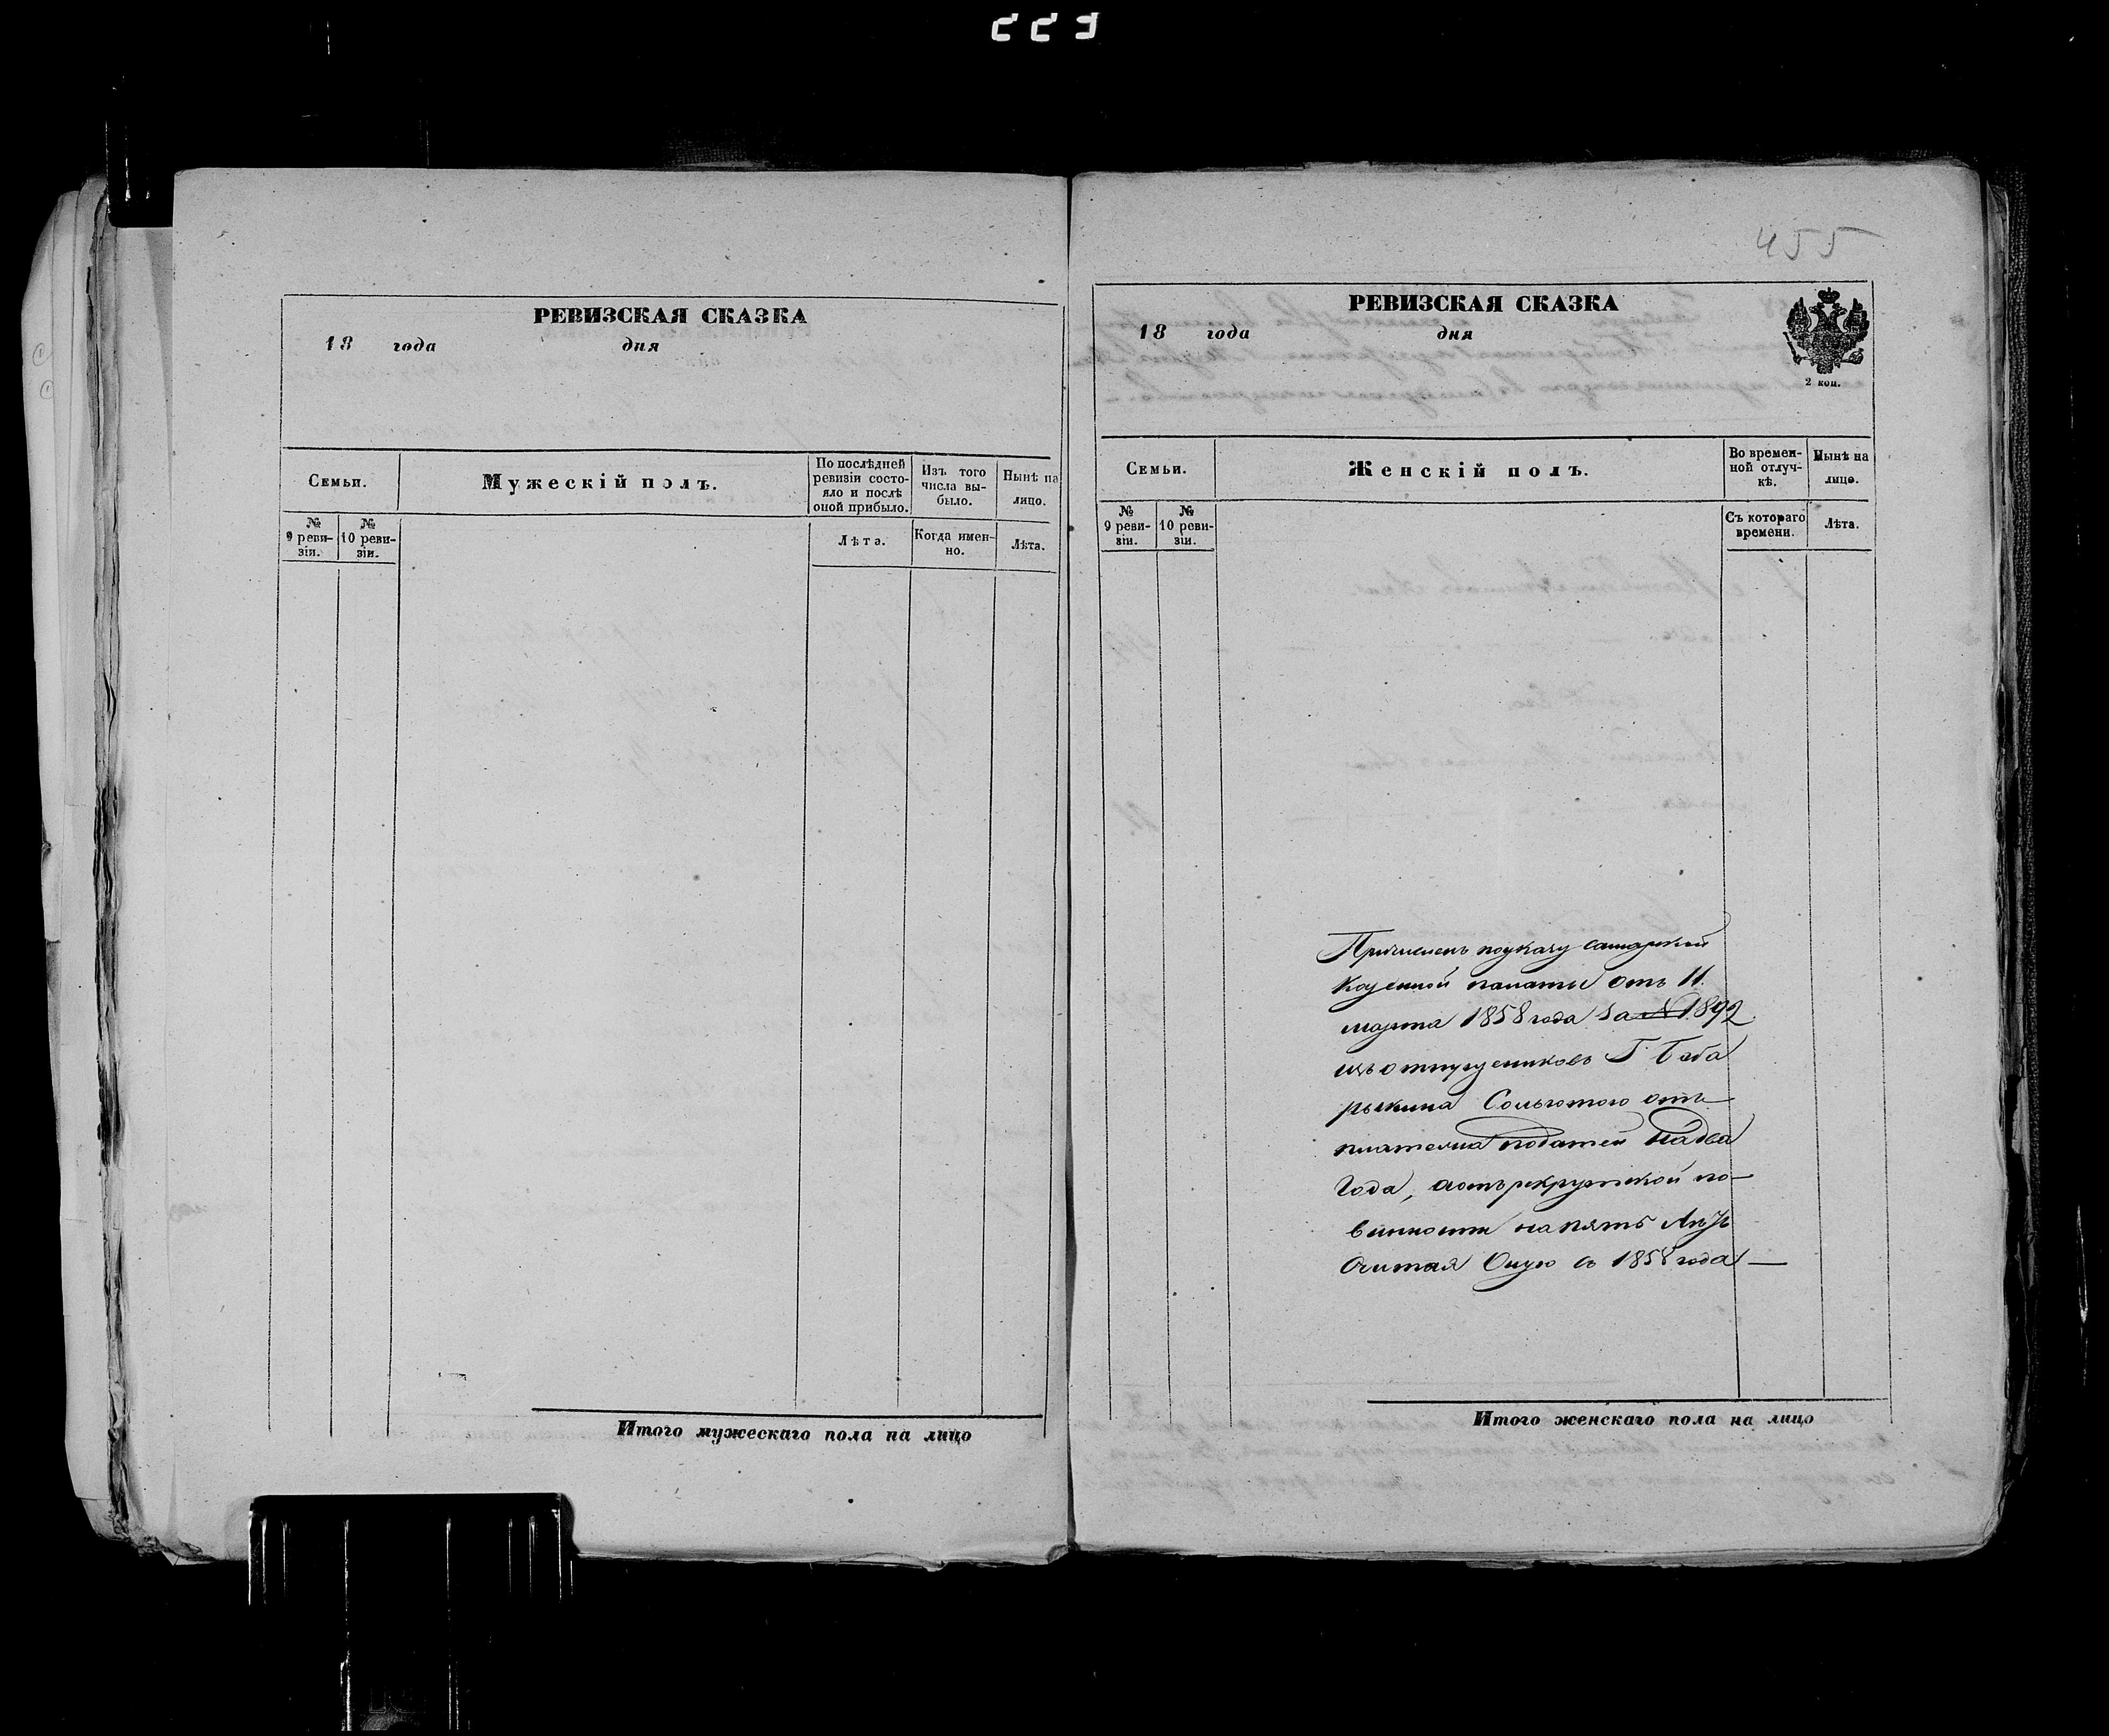 455
РЕВИЗСКАЯ СКАЗКА
18 года дня
Семьи.
Мужескій полъ.
По послѣдней ревизіи состояло и послѣ оной прибыло.
Изъ того числа выбыло.
Нынѣ на лицо.
№ 9 ревизіи.
№ 10 ревизіи.
Лѣта.
Когда именно.
Лѣта.
Итого мужескаго пола на лицо
РЕВИЗСКАЯ СКАЗКА
18 года дня
2 коп.
Семьи.
Женскій полъ.
Во временной отлучкѣ.
Нынѣ на лицо.
№ 9 ревизіи.
№ 10 ревизіи.
Съ котораго времени.
Лѣта.
Причисленъ поуказу самарской
казенной палаты отъ 11.
марта 1858 года за № 1892
изъ отпущениковъ Г. Баба
рыкина Сольготою отъ
платежа податей надва
года, аотърекрутской по-
винности напять лѣтъ
Считая Оную съ 1858 года —
Итого женскаго пола на лицо